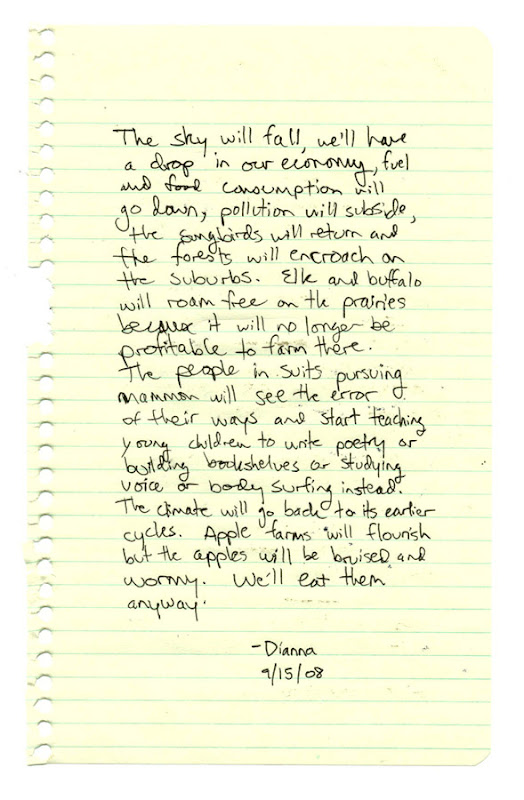 The sky will fall, we'll have
a drop in our economy, fuel
and food consumption will
go down, pollution will subside,
the songbirds will return and
the forests will encroach on
the suburbs. Elk and buffalo
will roam free on the prairies
because it will no longer be
profitable to farm there.
The people in suits pursuing
mammon will see the error
of their ways and start teaching
young children to write poetry or
building bookshelves or studying
voice or body surfing instead.
The climate will go back to its earlier
cycles. Apple farms will flourish
but the apples will be bruised and
wormy. We'll eat them
anyway.
-Dianna
9/15/08